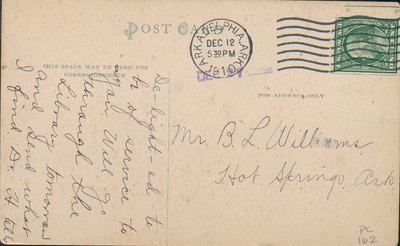 POST CARD
THIS SPACE MAY BE USED FOR
CORRESPONDENCE
FOR ADDRESS ONLY
ARKADELPHIA, ARK.
DEC 12
5 30 PM
1910
De-light-ed to
be of service to
You Will go
through the
Library tomorrow
and send what
I find. Dr. H
Mr. B. L. Williams,
Hot Springs, Ark
PC
162